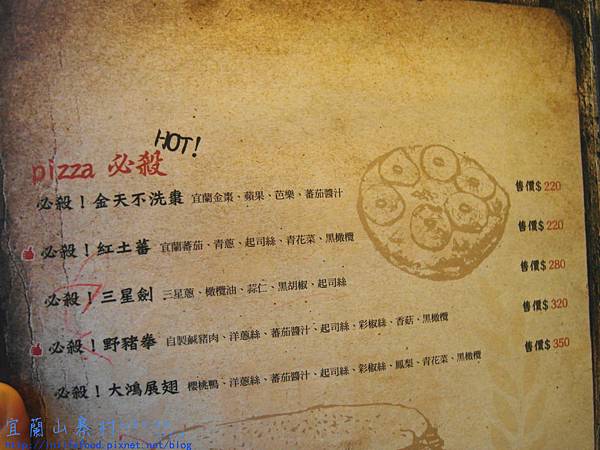 HOT!
pizza 必殺
必殺！金天不洗棗 宜蘭金棗、蘋果、芭樂、蕃茄醬汁 售價$220
必殺！紅土蕃 宜蘭蕃茄、青蔥、起司絲、青花菜、黑橄欖 售價$220
必殺！三星劍 三星蔥、橄欖油、蒜仁、黑胡椒、起司絲 售價$280
必殺！野豬拳 自製鹹豬肉、洋蔥絲、蕃茄醬汁、起司絲、彩椒絲、香菇、黑橄欖 售價$320
必殺！大鴻展翅 櫻桃鴨、洋蔥絲、蕃茄醬汁、起司絲、彩椒絲、鳳梨、青花菜、黑橄欖 售價$350
宜蘭山寨村